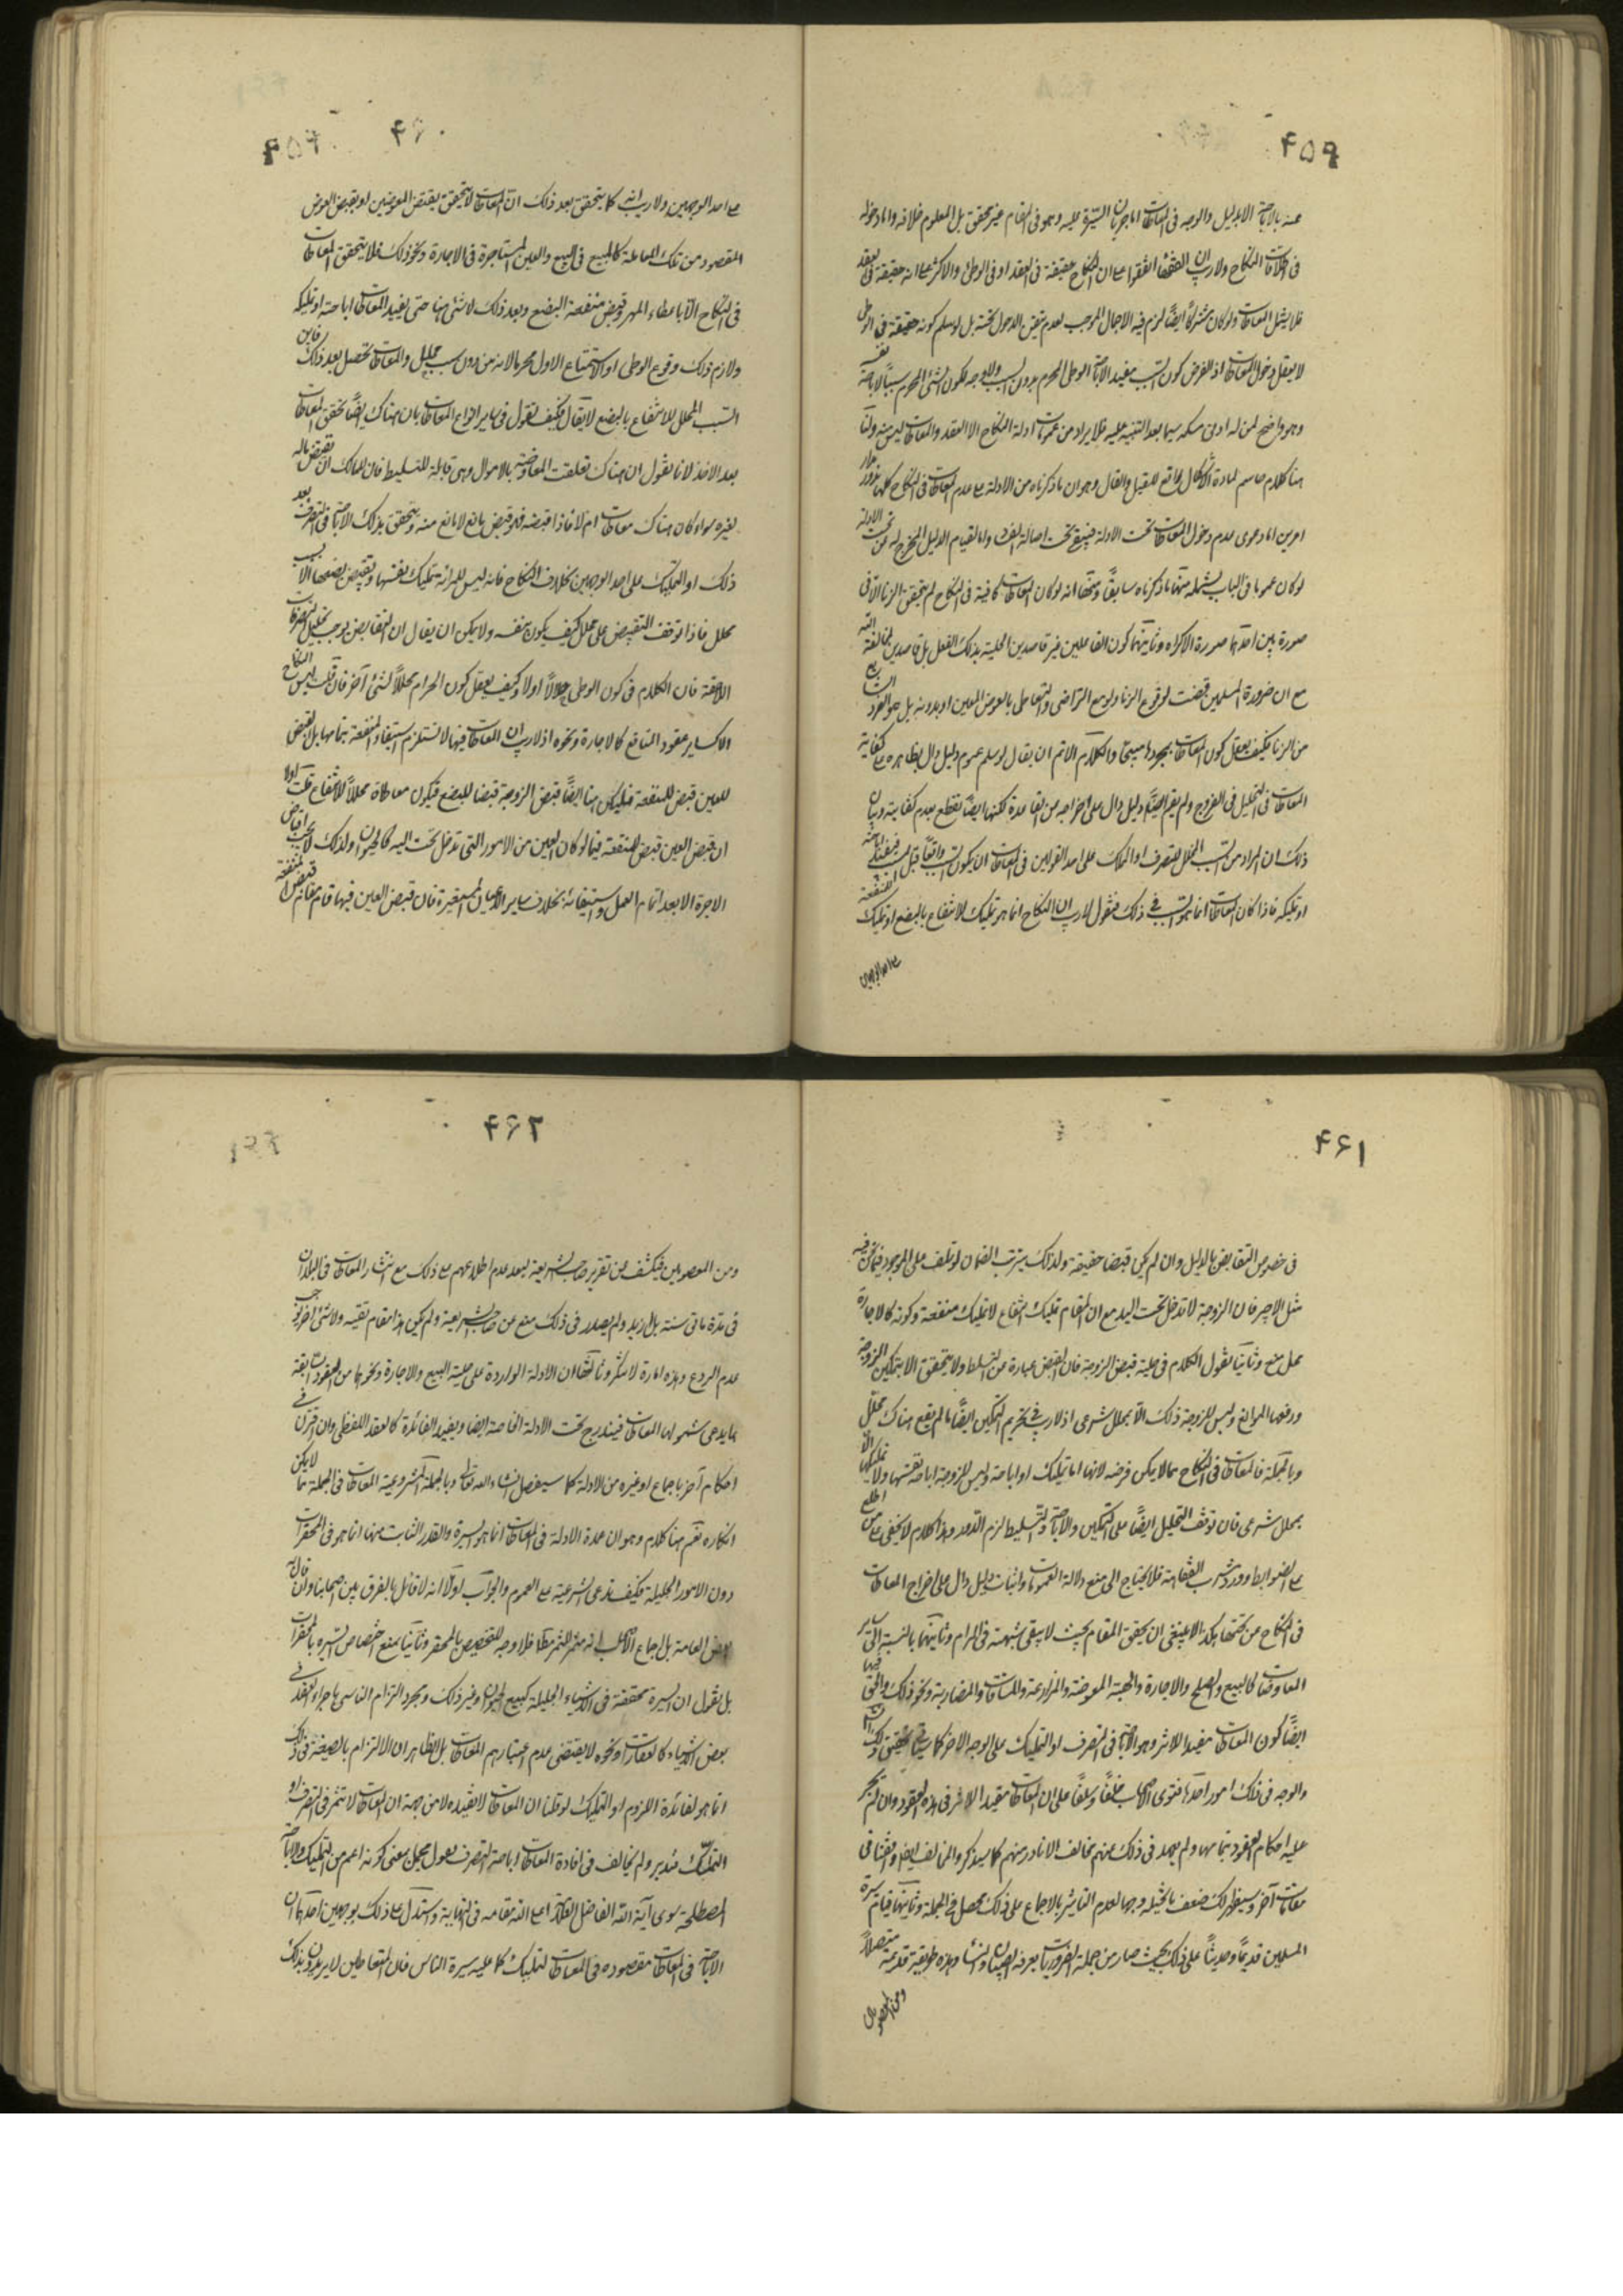 ۴۵۹
عنه بالاباحة الا بدليل والوجه فى المعاطات اما جريان السيرة عليه وهو فى المقام غير محقق بل المعلوم خلافه واما دخوله
فى اطلاقات النكاح ولا ريب ان الفقهاء اتفقوا على ان النكاح حقيقة فى العقد او فى الوطى والاكثر على انه حقيقة فى العقد
فلا يشمل المعاطات ولو كان مشتركا ايضا لزم فيه الاجمال الموجب لعدم تيقن الدخول تحته بل لو سلم كونه حقيقة فى الوطى
لا يعقل دخول المعاطات اذ الفرض كون السبب مفيد الاباحة الوطى المحرم بدون السبب ولا وجه لكون الشئ المحرم سببا لاباحة نفسه
وهو واضح لمن له ادنى مسكة سيما بعد التنبيه عليه فلا يراد من عمومات ادلة النكاح الا العقد والمعاطات ليس منه ولنا
هنا كلام حاسم لمادة الاشكال قاطع للقيل والقال وهو ان ما ذكرناه من الادلة على عدم المعاطات فى النكاح كلها تدور مدار
امرين اما دعوى عدم دخول المعاطات تحت الادلة فيبقى تحت اصالة الفساد واما لقيام الدليل المخرج له عن تحت الادلة
لو كان عموما فى الباب يشمله منها ما ذكرناه سابقا ومنها انه لو كان المعاطات كافية فى النكاح لم يتحقق الزنا الا فى
صورة بين احدهما صورة الاكراه وثانيتهما كون الفاعلين غير قاصدين الحلية بذلك الفعل بل قاصدين لمخالفة الله
مع ان ضرورة المسلمين قضت لوقوع الزنا ولو مع التراضى والتعامل بالعوض المعين او بدونه بل هو الفرد الشايع
من الزنا فكيف يعقل كون المعاطات بمجردها مبيحا والكلام الاتم ان يقال لو سلم عموم دليل دال بظاهره على كفاية
المعاطات فى التحليل فى الفروج ولم يقم ايضا دليل دال على اخراجه من القاعدة لكنها ايضا نقطع بعدم كفايته وبيان
ذلك ان المراد من السبب المحلل للتصرف او المملك على احد القولين فى المعاطات ان يكون السبب واقعا قبل المسبب فيفيد اباحته
او تمليكه فاذا كان المعاطات انما هو السبب فى ذلك فنقول لا ريب ان النكاح انما هو تمليك للانتفاع بالبضع او تمليك المنفعة
على احد الوجهين
۴۶۰
على احد الوجهين ولا ريب انه كما يتحقق بعد ذلك ان المعاطات لا يتحقق بقبض العوضين او بقبض العوض
المقصود من تلك المعاملة كالمبيع فى البيع والعين المستاجرة فى الاجارة ونحو ذلك فلا يتحقق المعاطات
فى النكاح الا باعطاء المهر وقبض منفعة البضع وبعد ذلك لا شئ هنا حتى يفيد المعاطات اباحته او تمليكه
ولازم ذلك وقوع الوطى او الاستمتاع الاول محرما لانه من دون سبب محلل والمعاطات تحصل بعد ذلك فاين
السبب المحلل للانتفاع بالبضع لا يقال فكيف تقول فى ساير انواع المعاطات بان هناك ايضا تحقق المعاطات
بعد الاخذ لانا نقول ان هناك تعلقت المعاوضة بالاموال وهى قابلة للتسليط فان للمالك ان يقبض ماله
لغيره سواء كان هناك معاطات ام لا فاذا اقبضه فهو قبض سائغ لا مانع منه ويتحقق بذلك الاباحة فى التصرف بعد
ذلك او التمليك على احد الوجهين بخلاف النكاح فانه ليس للمرأة تمليك نفسها وتقبيض بضعها الا بسبب
محلل فاذا توقف التقبيض على محلل كيف يكون بنفسه ولا يمكن ان يقال ان التقابض يوجب تحليل التصرفات
اللاحقة فان الكلام فى كون الوطى حلالا اولا وكيف يعقل كون الحرام محللا لشئ آخر فان قلت ليس النكاح
الا كساير عقود المنافع كالاجارة ونحوه اذ لا ريب ان المعاطات فيها لا تستلزم استيفاء المنفعة بتمامها بل القبض
للعين قبض للمنفعة فليكن هنا ايضا قبض الزوجة قبضا للبضع فيكون معاطاة محللا للانتفاع قلت اولا
ان قبض العين قبض للمنفعة فيما لو كان العين من الامور التى تدخل تحت اليد كالحيوان ولذلك لا يجب اقباض
الاجرة الا بعد اتمام العمل واستيفائه بخلاف ساير الاعيان المستقرة فان قبض العين فيها قام مقام قبض المنفعة
۴۶۱
فى خصوص التقابض بالدليل وان لم يكن قبضا حقيقة ولذلك يترتب الضمان لو تلف على الموجود فما نحن فيه
مثل الاجير فان الزوجة لا تدخل تحت اليد مع ان المقام تمليك انتفاع لا تمليك منفعة وكونه كالاجارة
محل منع وثانيا نقول الكلام فى حلية قبض الزوجة فان القبض عبارة عن التسلط ولا يتحقق الا بتمكين الزوجة
ورفعها الموانع وليس للزوجة ذلك الا بمحلل شرعى اذ لا ريب فى تحريم التمكين ايضا ما لم يقع هناك محلل
وبالجملة فالمعاطات فى النكاح مما لا يمكن فرضه لانها اما تمليك او اباحة وليس للزوجة اباحة نفسها ولا تمليكها الا
بمحلل شرعى فان توقف التحليل ايضا على التمكين والاباحة والتسليط لزم الدور وهذا كلام لا يخفى على من اطلع
على الضوابط وورد مشرب الفقاهة فلا يحتاج الى منع دلالة العمومات واثبات دليل دال على اخراج المعاطات
فى النكاح من تحتها هكذا ينبغى ان يحقق المقام بحيث لا يبقى شبهة فى المرام وثانيتهما بالنسبة الى ساير
المعاوضات كالبيع والصلح والاجارة والهبة المعوضة والمزارعة والمساقات والمضاربة ونحو ذلك والحق فيها
ايضا كون المعاطات مفيدا للاثر وهو الاباحة فى التصرف او التمليك على الوجه الاخر كما سياتى تحقيق ذلك
والوجه فى ذلك امور احدها فتوى الاصحاب خلفا وسلفا على ان المعاطات مفيد للاثر فى هذه العقود وان لم يجر
عليه احكام العقود بتمامها ولم يعهد فى ذلك منهم مخالف الا نادر منهم كما سيذكر والمخالف ايضا وافقنا فى
مقامات آخر وسيظهر لك ضعف ما تخيله وجها لعدم التاثير بالاجماع على ذلك محصل فى الجملة وثانيها قيام سيرة
المسلمين قديما وحديثا على ذلك بحيث صار من جملة الضروريات يعرفه الصبيان والنساء وهذه طريقة قديمة متصلة
ومن المعصومين
۴۶۲
ومن المعصومين فيكشف عن تقرير صاحب الشريعة لبعد عدم اطلاعهم على ذلك مع انتشار المعاطات فى البلدان
فى مدة مأتى سنة بل ازيد ولم يصدر فى ذلك منع عن صاحب الشريعة ولم يكن هذا مقام تقية ولا شئ آخر يوجب
عدم الردع وهذه امارة لا تنكر وثالثها ان الادلة الواردة على حلية البيع والاجارة ونحوها من العقود السابقة
مما يدعى شمولها المعاطات فيندرج تحت الادلة الخاصة ايضا ويفيد الفائدة كالعقد اللفظى وان افترق فى
احكام آخر باجماع او غيره من الادلة كما سيفصل انشاء الله تعالى وبالجملة المشروعية المعاطات فى الجملة مما لا يمكن
انكاره نعم هنا كلام وهو ان عمدة الادلة فى المعاطات انما هو السيرة والقدر الثابت منها انما هو فى المحقرات
دون الامور الجليلة فكيف تدعى الشرعية على العموم والجواب اولا انه لا قائل بالفرق بين اصحابنا وان قال به
بعض العامة بل اجماع الاصحاب انه مثمر للثمر مطلقا فلا وجه للتخصيص بالمحقر وثانيا نمنع اختصاص السيرة بالمحقرات
بل نقول ان السيرة متحققة فى الاشياء الجليلة كبيع الحيوان وغير ذلك ومجرد التزام الناس باجراء العقد فى
بعض الاشياء كالعقارات ونحوه لا يقتضى عدم اعتبارهم المعاطات بل الظاهر ان الالتزام بالصيغة فى ذلك
انما هو لفائدة اللزوم او التمليك لو قلنا ان المعاطات لا تفيده لا من جهة ان المعاطات لا تثمر فى التصرف او
التملك فتدبر ولم يخالف فى افادة المعاطات اباحة التصرف بقول مجمل بمعنى كونه اعم من التمليك والاباحة
المصطلحة سوى آية الله الفاضل العلامة اعلى الله مقامه فى النهاية واستدل على ذلك بوجهين احدهما ان
الاباحة فى المعاطات مقصوده فى المعاطات التمليك كما عليه سيرة الناس فان المتعاطين لا يريدون بذلك